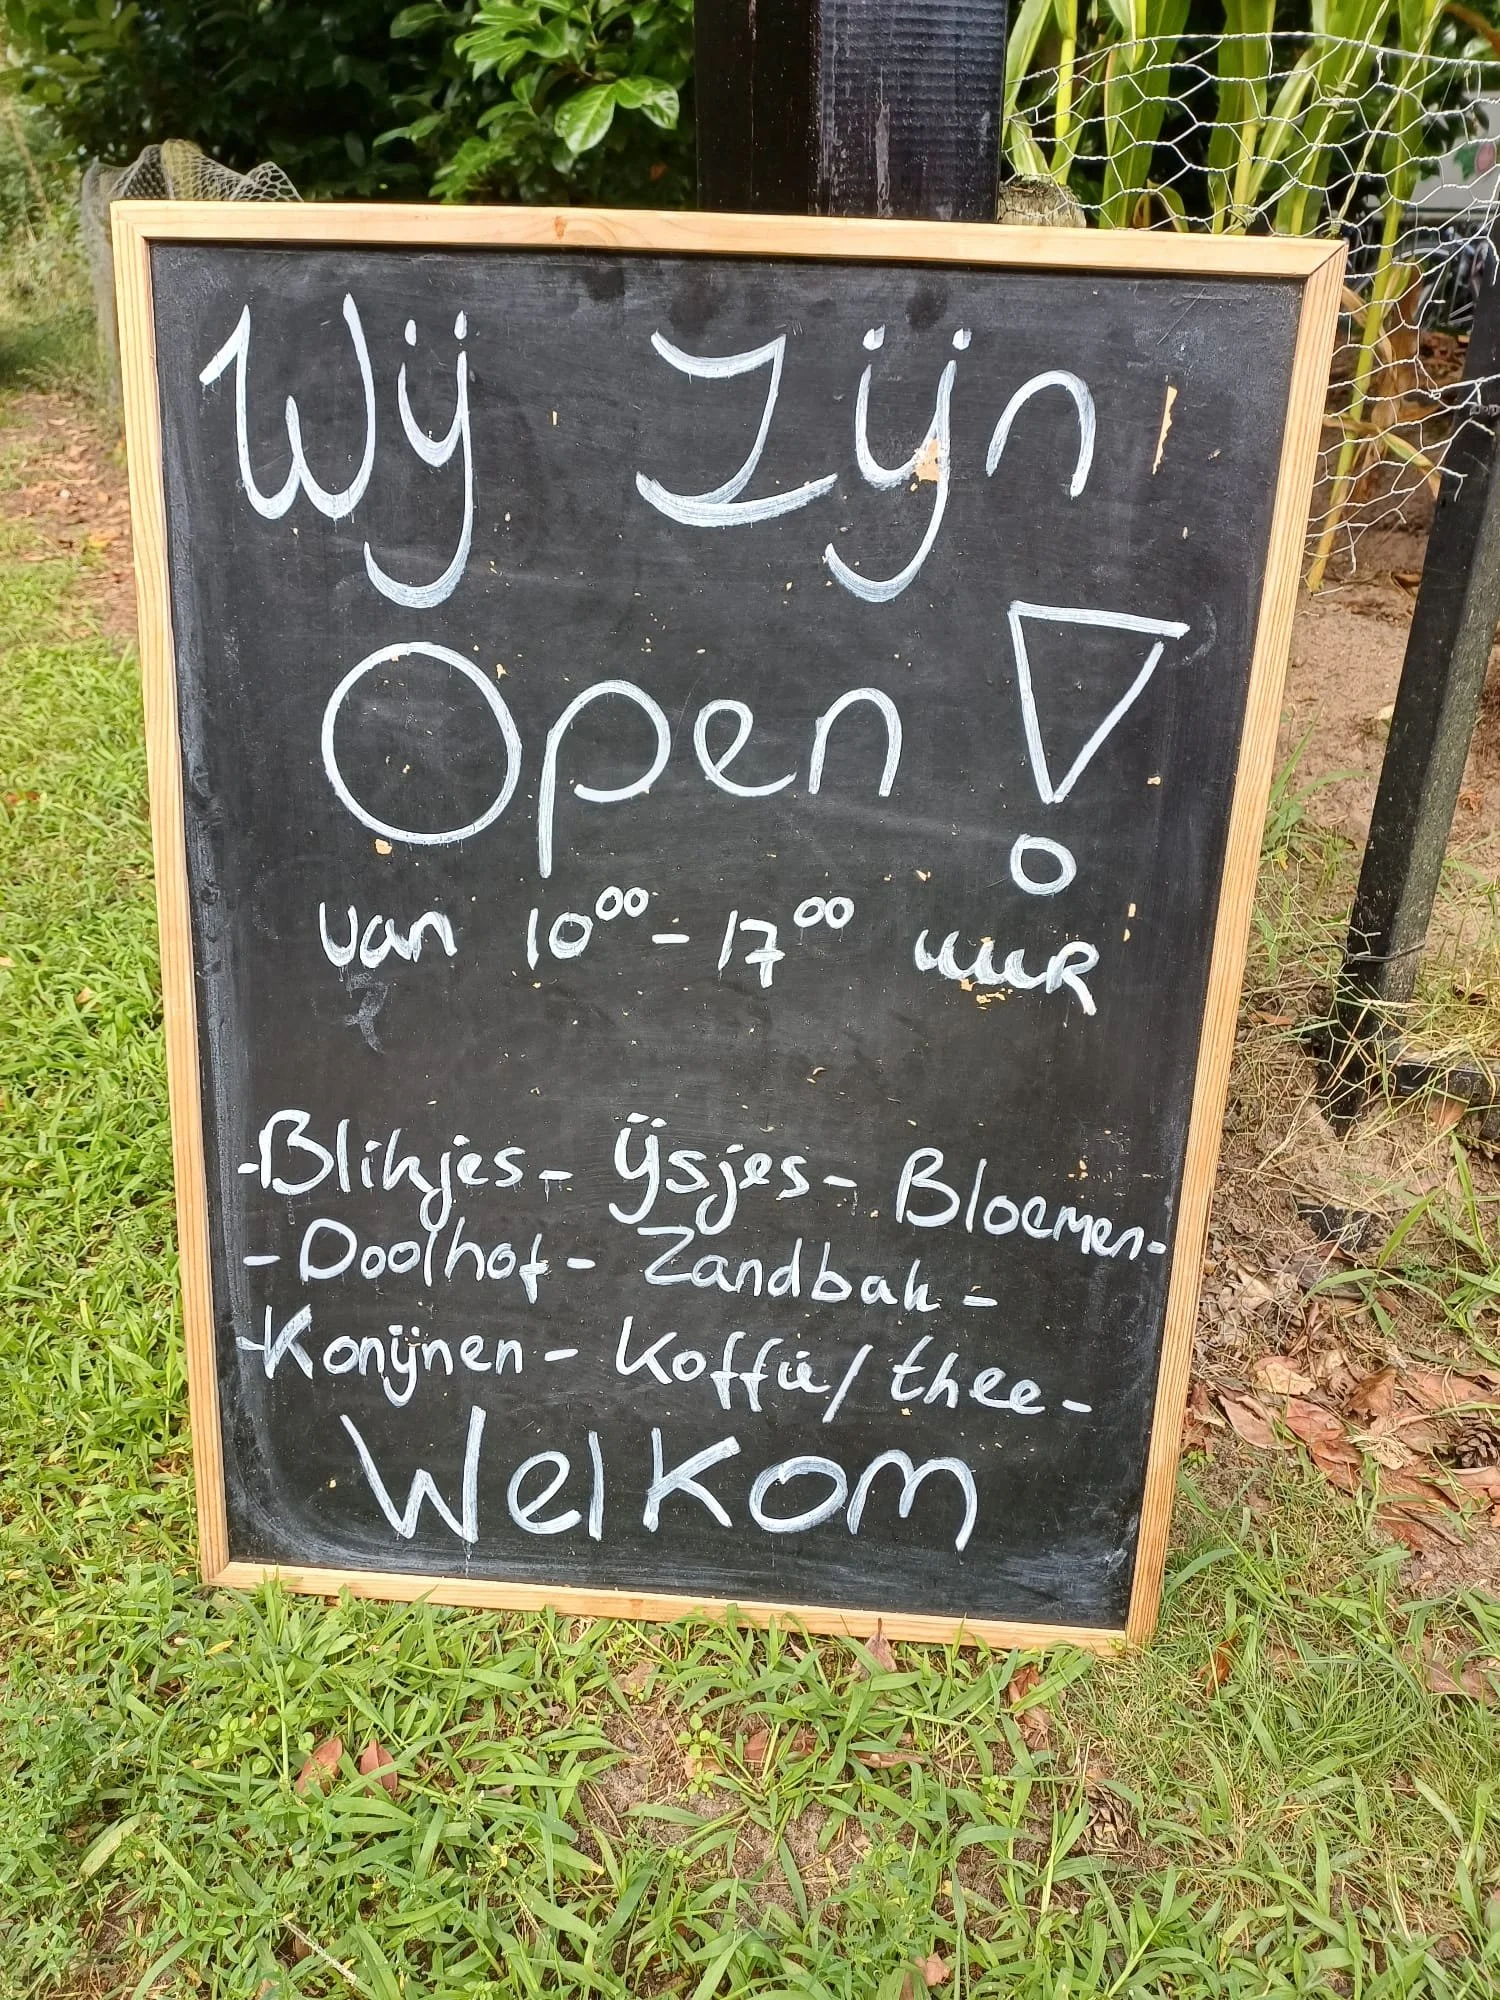 Wij zijn
Open!
van 10⁰⁰ - 17⁰⁰ uur
-Blikjes- ijsjes- Bloemen-
-Doolhof- Zandbak-
-Konijnen- Koffie/thee-
Welkom